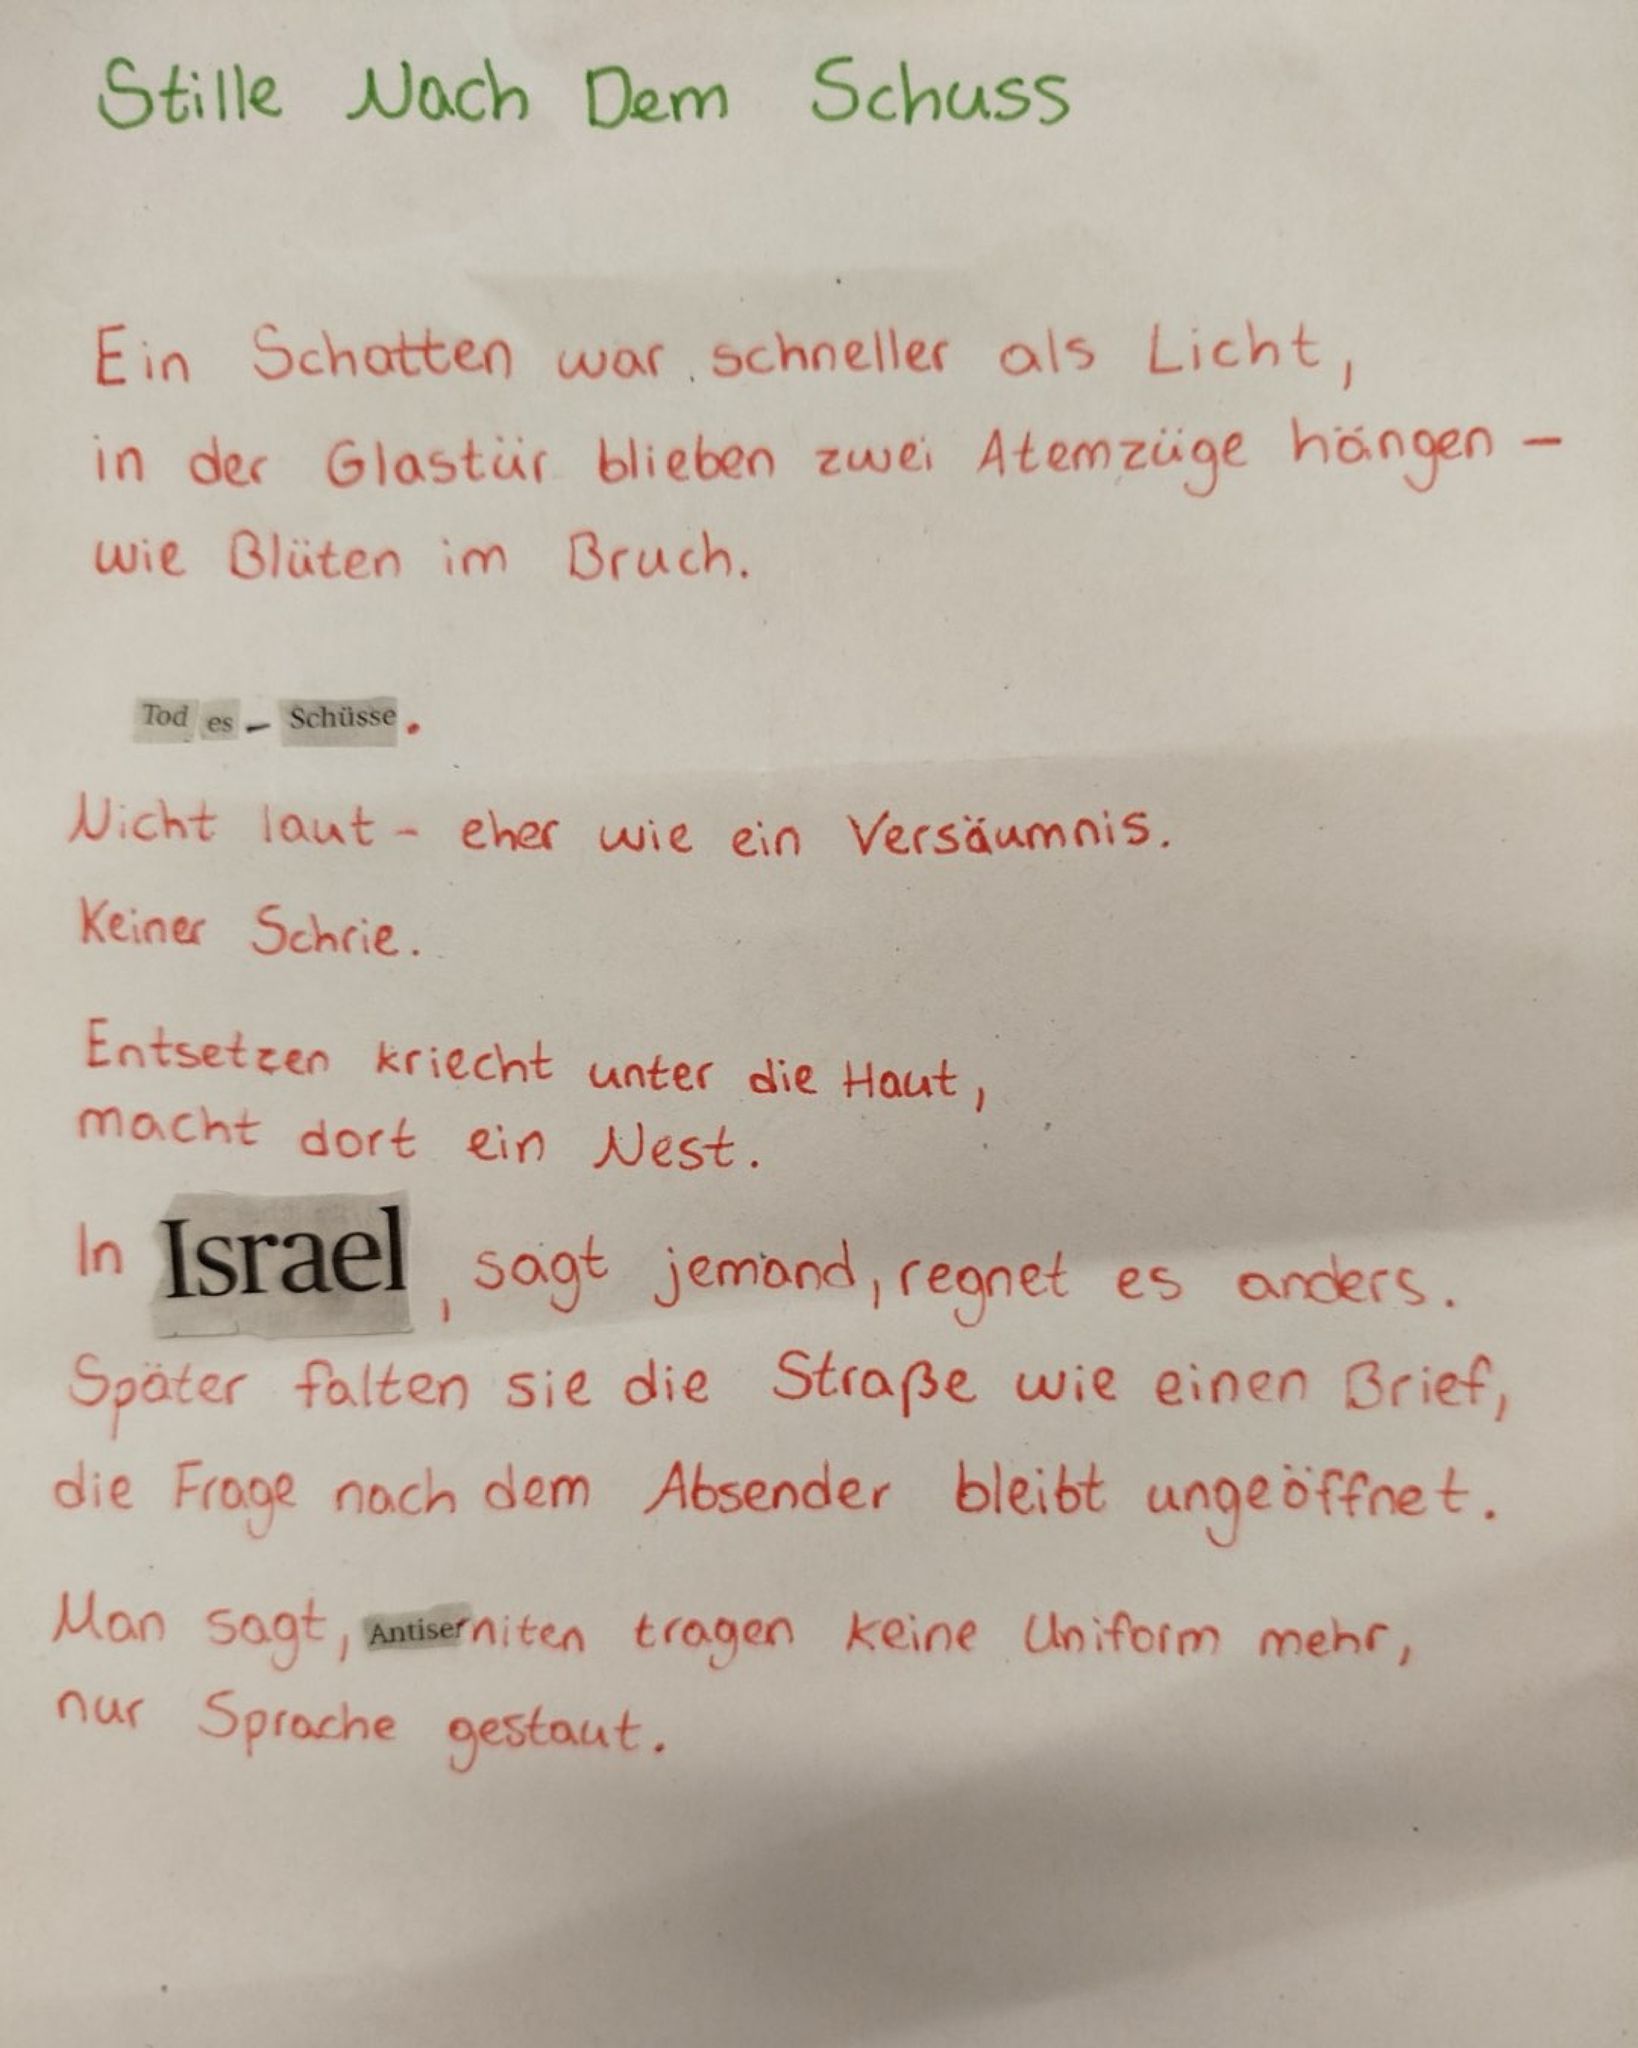 Stille Nach Dem Schuss
Ein Schatten war schneller als Licht,
in der Glastür blieben zwei Atemzüge hängen –
wie Blüten im Bruch.
Todes-Schüsse.
Nicht laut – eher wie ein Versäumnis.
Keiner Schrie.
Entsetzen kriecht unter die Haut,
macht dort ein Nest.
In Israel, sagt jemand, regnet es anders.
Später falten sie die Straße wie einen Brief,
die Frage nach dem Absender bleibt ungeöffnet.
Man sagt, Antisemiten tragen keine Uniform mehr,
nur Sprache gestaut.